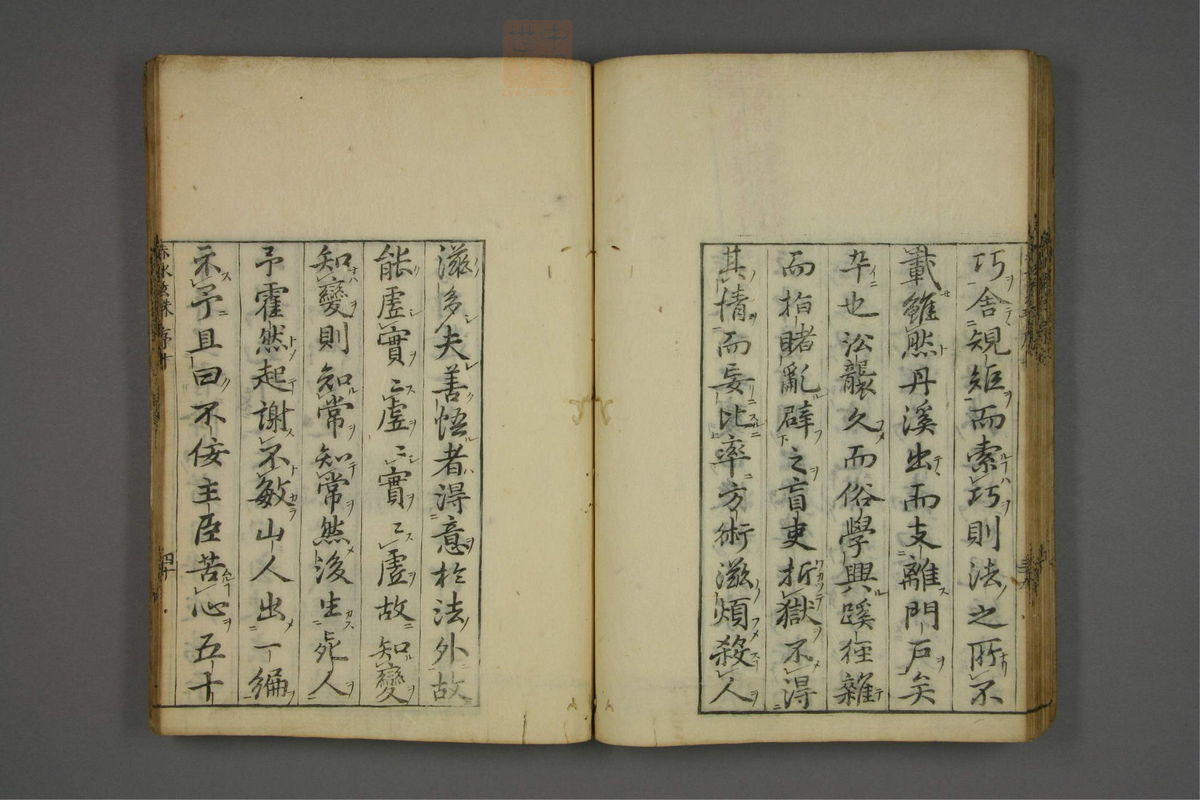 巧舍規矩而索巧則法之所不
載雖然丹溪出而支離門戸矣
卒也沿襲久而俗學興蹊径雜
而指睹亂辟之盲吏折獄不得
其情而妄比率方術滋煩殺人
滋多夫善悟者得意於法外故
能虚實〻虚〻實〻虚故知變
知變則知常知常然後生死人
予霍然起謝不敏山人出一編
示予且曰不佞主臣苦心五十